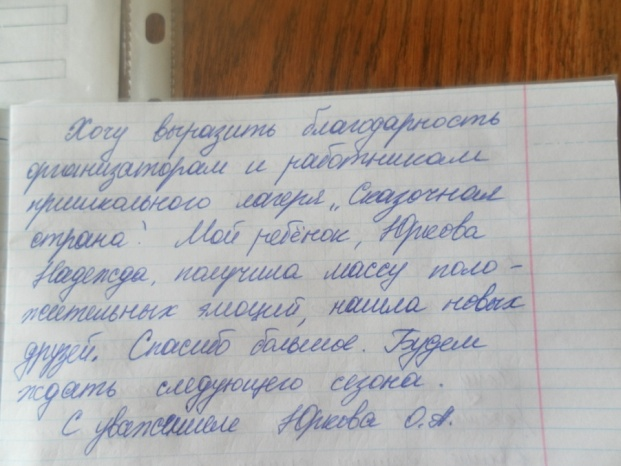 Хочу выразить благодарность
организаторам и работникам
пришкольного лагеря „Сказочная
страна". Мой ребёнок, Юркова
Надежда, получила массу поло-
жительных эмоций, нашла новых
друзей. Спасибо большое. Будем
ждать следующего сезона.
С уважением Юркова О.А.